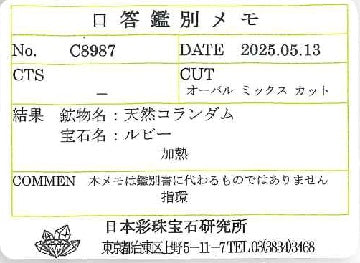 口答鑑別メモ
No. C8987 DATE 2025.05.13
CTS CUT
– オーバル ミックス カット
結果 鉱物名:天然コランダム
宝石名:ルビー
加熱
COMMEN 本メモは鑑別書に代わるものではありません
指環
日本彩珠宝石研究所
東京都台東区上野5-11-7 TEL03(3834)3468